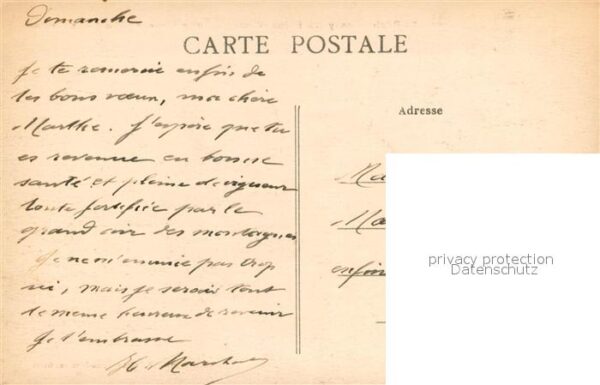 Dimanche
CARTE POSTALE
Je te remercie enfin de
tes bons vœux, ma chère
Marthe. J'espère que tu
es revenue en bonne
santé et pleine de vigueur
toute fortifiée par le
grand air des montagnes
Je ne m'ennuie pas trop
ici, mais je serais tout
de même heureux de revenir
Je t'embrasse
Adresse
Ma
Ma
privacy protection
Datenschutz